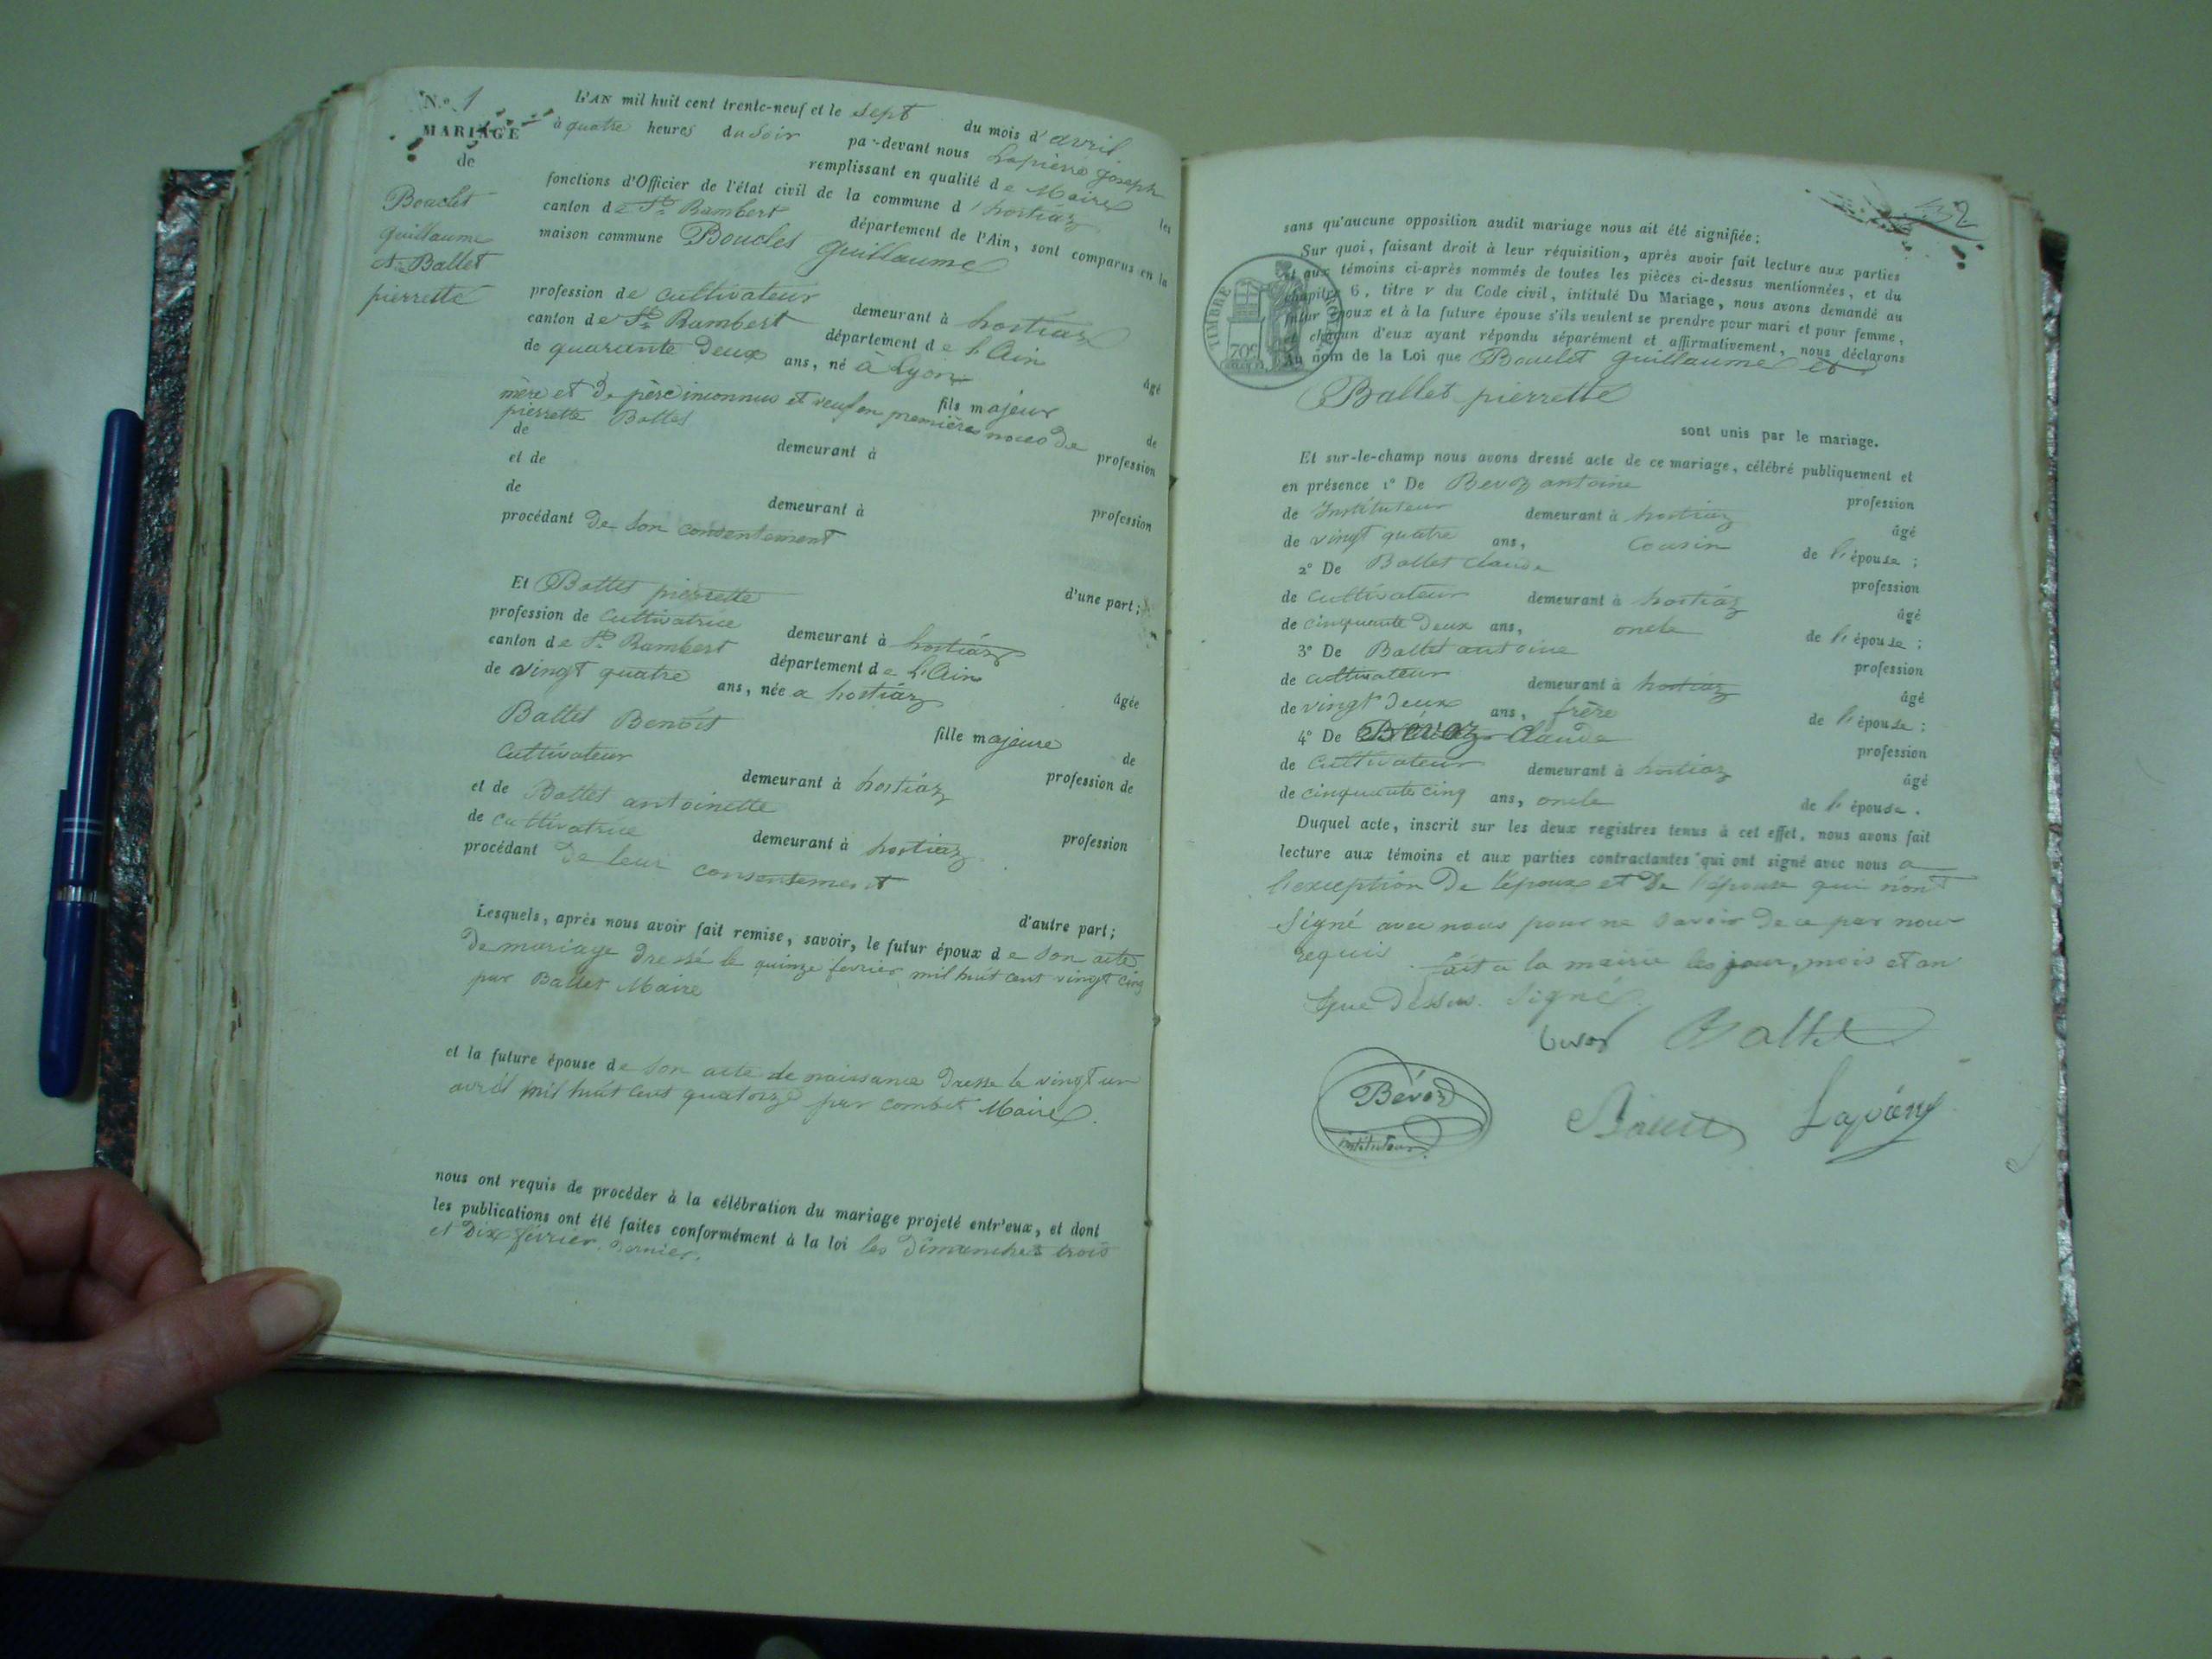 N.º 1
MARIAGE
de
Bouclet
guillaume
et Ballet
pierrette
L'AN mil huit cent trente-neuf et le sept du mois d'avril
à quatre heures du Soir par-devant nous Lapierre joseph
remplissant en qualité de Maire les
fonctions d'Officier de l'état civil de la commune d'hostiaz
canton de St Rambert département de l'Ain, sont comparus en la
maison commune Bouclet guillaume
profession de cultivateur demeurant à hostiaz
canton de St Rambert département de l'Ain
de quarante deux ans, né à Lyon âgé
fils majeur de
mère et de père inconnus et veuf en premières noces de
pierrette Ballet profession
de demeurant à
et de
de demeurant à profession
procédant de son consentement
d'une part;
Et Ballet pierrette
profession de cultivatrice demeurant à hostiaz
canton de St Rambert département de l'Ain
de vingt quatre ans, née a hostiaz âgée
fille majeure de
Ballet Benoit
cultivateur demeurant à hostiaz profession de
et de Ballet antoinette
de cultivatrice demeurant à hostiaz profession
procédant de leur consentement
d'autre part;
Lesquels, après nous avoir fait remise, savoir, le futur époux de son acte
de mariage dressé le quinze fevrier mil huit cent vingt cinq
par Ballet Maire
et la future épouse de son acte de naissance dresse le vingt un
avril mil huit cent quatorze par combet Maire.
nous ont requis de procéder à la célébration du mariage projeté entr'eux, et dont
les publications ont été faites conformément à la loi les dimanches trois
et dix février dernier.
sans qu'aucune opposition audit mariage nous ait été signifiée;
Sur quoi, faisant droit à leur réquisition, après avoir fait lecture aux parties
et aux témoins ci-après nommés de toutes les pièces ci-dessus mentionnées, et du
chapitre 6, titre V du Code civil, intitulé Du Mariage, nous avons demandé au
futur époux et à la future épouse s'ils veulent se prendre pour mari et pour femme,
et chacun d'eux ayant répondu séparément et affirmativement, nous déclarons
Au nom de la Loi que Bouclet guillaume et
Ballet pierrette
sont unis par le mariage.
TIMBRE ROYAL
70c
Et sur-le-champ nous avons dressé acte de ce mariage, célébré publiquement et
en présence 1º De Bevoz antoine profession
de Instituteur demeurant à hostiaz âgé
de vingt quatre ans, Cousin de l'épouse;
2º De Ballet Claude profession
de cultivateur demeurant à hostiaz âgé
de cinquante deux ans, oncle de l'épouse;
3º De Ballet antoine profession
de cultivateur demeurant à hostiaz âgé
de vingt deux ans, frère de l'épouse;
4º De Bévoz Claude profession
de cultivateur demeurant à hostiaz âgé
de cinquante cinq ans, oncle de l'épouse.
Duquel acte, inscrit sur les deux registres tenus à cet effet, nous avons fait
lecture aux témoins et aux parties contractantes qui ont signé avec nous a
l'exception de l'époux et de l'épouse qui n'ont
signé avec nous pour ne savoir de ce par nous
requis. fait a la mairie les jour, mois et an
que dessus. Signé.
bevoz Ballet
Bévoz
instituteur
Lapierre